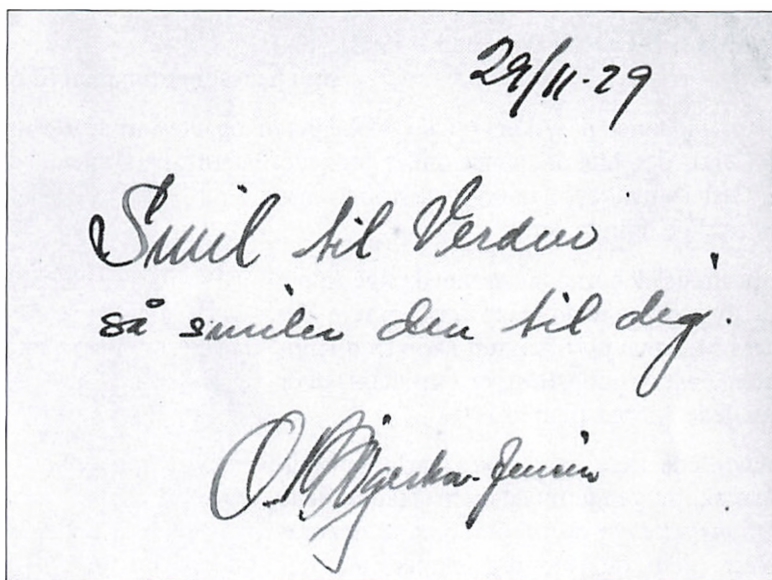 29/11-29
Smil til Verden
så smiler den til dig.
Jensen